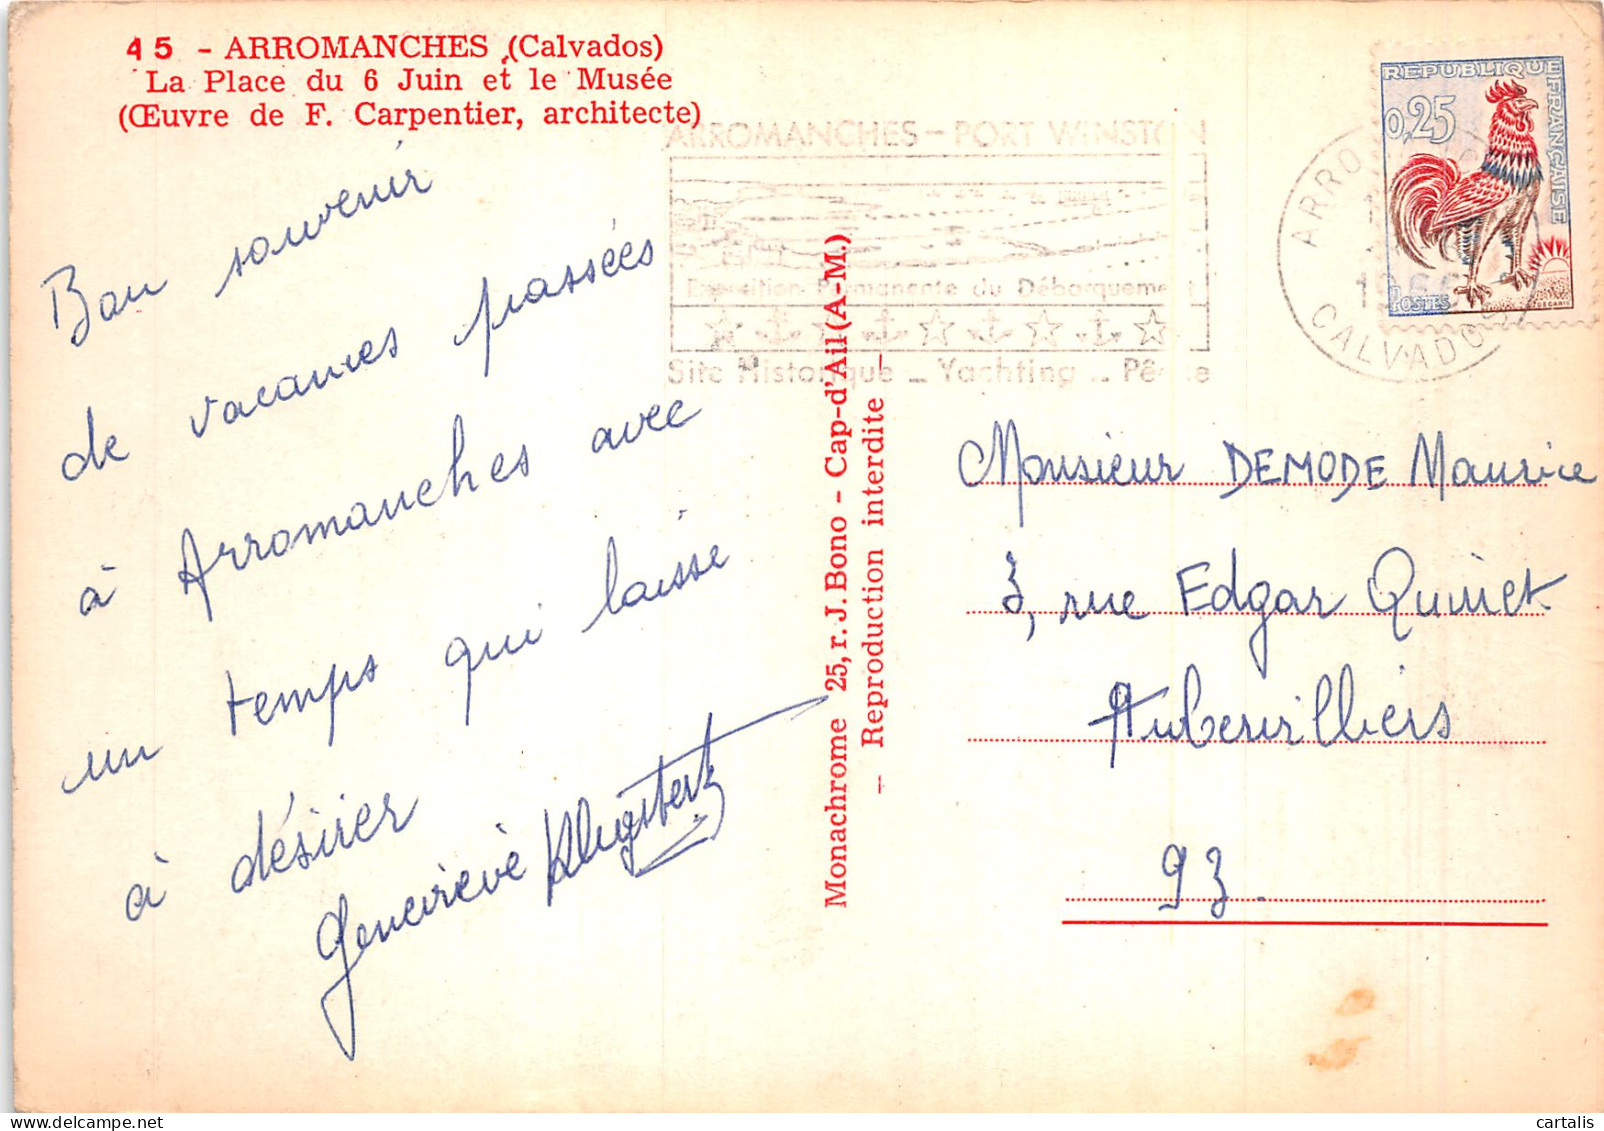 45 - ARROMANCHES (Calvados)
La Place du 6 Juin et le Musée
(Œuvre de F. Carpentier, architecte)
ARROMANCHES - PORT WINSTON
Exposition Permanente du Débarquement
Site Historique - Yachting - Pêche
CALVADOS
REPUBLIQUE FRANÇAISE
0,25
POSTES
DECARIS
Bon souvenir
de vacances passées
à Arromanches avec
un temps qui laisse
à désirer
Geneviève
Monachrome 25, r. J. Bono - Cap-d'Ail (A M.)
- Reproduction interdite -
Monsieur DEMODE Maurice
3, rue Edgar Quinet
Aubervilliers
93.
cartalis